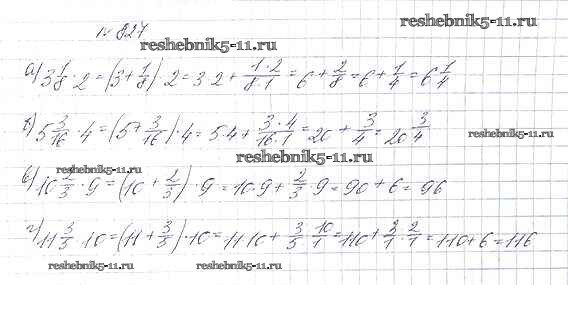 № 827
reshebnik5-11.ru
reshebnik5-11.ru
а) 3 1/8 · 2 = (3 + 1/8) · 2 = 3 · 2 + 1·2/8·1 = 6 + 2/8 = 6 + 1/4 = 6 1/4
б) 5 3/16 · 4 = (5 + 3/16) · 4 = 5 · 4 + 3·4/16·1 = 20 + 3/4 = 20 3/4
reshebnik5-11.ru
reshebnik5-11.ru
reshebnik5-11.ru
в) 10 2/3 · 9 = (10 + 2/3) · 9 = 10 · 9 + 2/3 · 9 = 90 + 6 = 96
г) 11 3/5 · 10 = (11 + 3/5) · 10 = 11 · 10 + 3/5 · 10/1 = 110 + 3/1 · 2/1 = 110 + 6 = 116
reshebnik5-11.ru
reshebnik5-11.ru